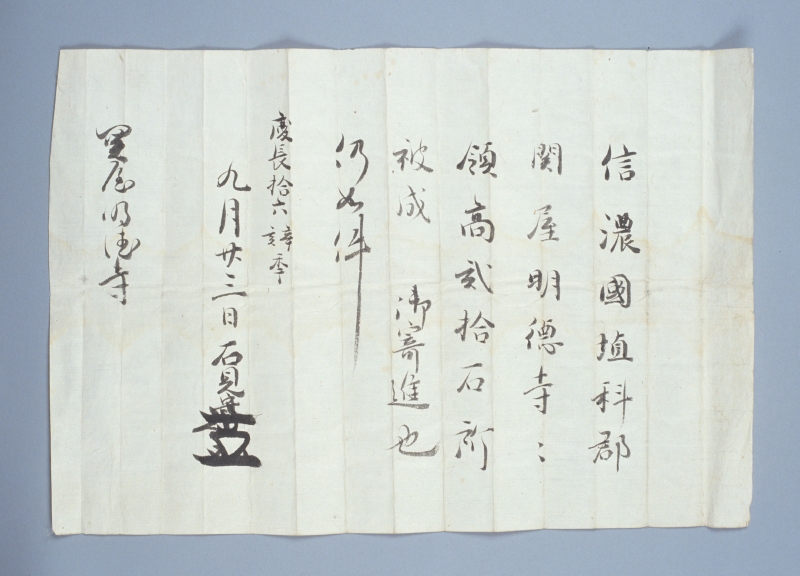 信濃國埴科郡
関屋明徳寺〻
領高貳拾石所
被成 御寄進也
仍如件
慶長拾六辛亥季
九月廿三日石見守
関屋明徳寺